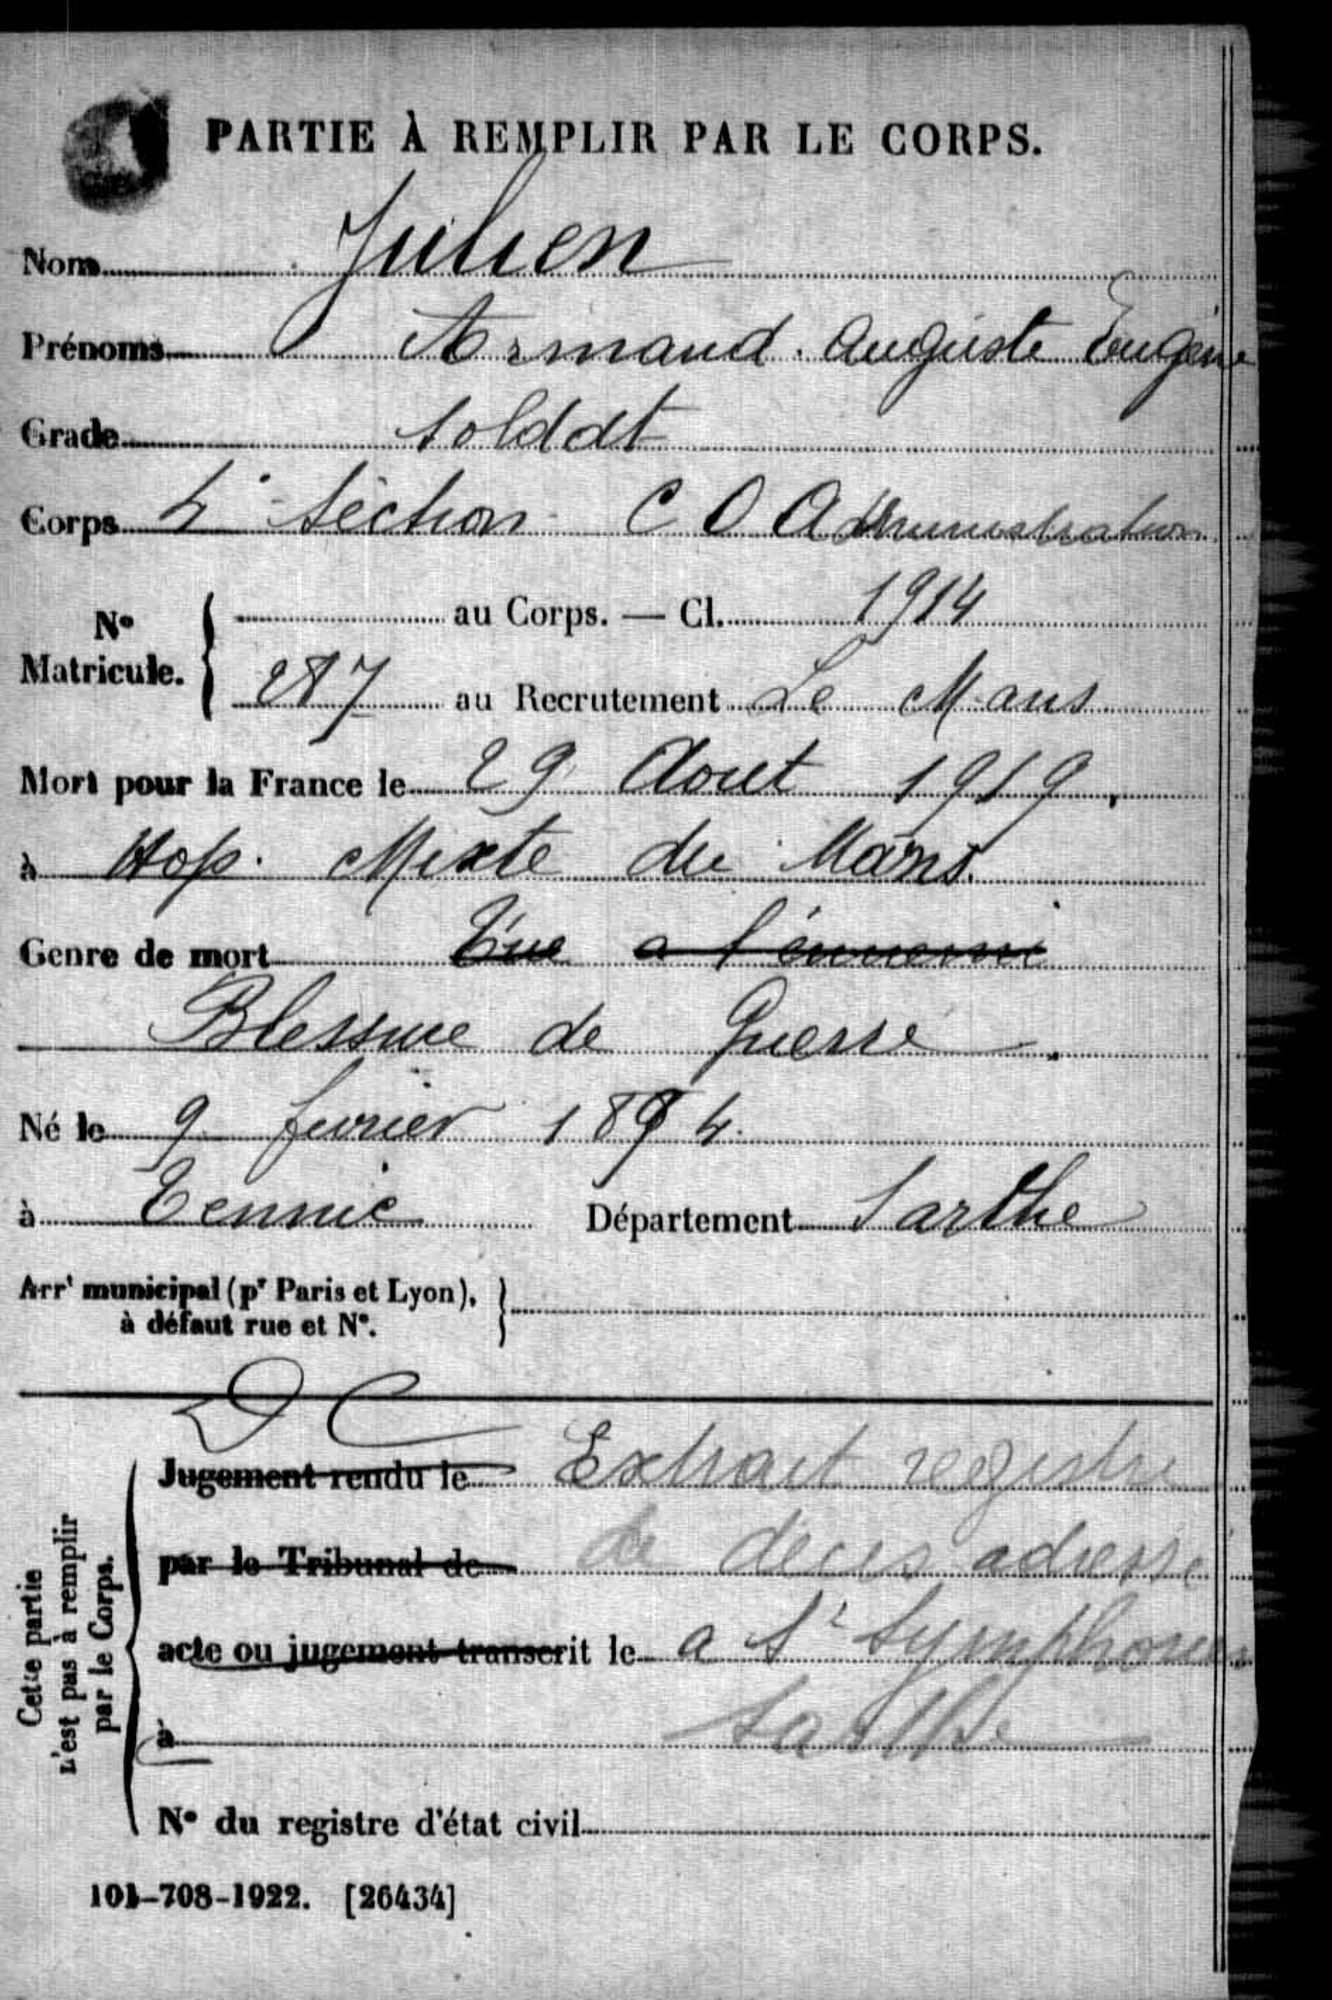 PARTIE À REMPLIR PAR LE CORPS.
Nom Julien
Prénoms Armand Auguste Eugène
Grade Soldat
Corps 4e Section C O Administration
No Matricule. au Corps. — Cl. 1914
287 au Recrutement Le Mans
Mort pour la France le 29 Aout 1919
à Hop. Mixte du Mans
Genre de mort Tué a l'ennemi
Blessure de Guerre
Né le 9 fevrier 1894
à Tennie Département Sarthe
Arrt municipal (pr Paris et Lyon),
à défaut rue et No.
D C
Jugement rendu le Extrait registre
par le Tribunal de de deces adressé
acte ou jugement transcrit le a St Symphorien
à Sarthe
No du registre d'état civil
Cette partie
n'est pas à remplir
par le Corps.
101-708-1922. [26434]